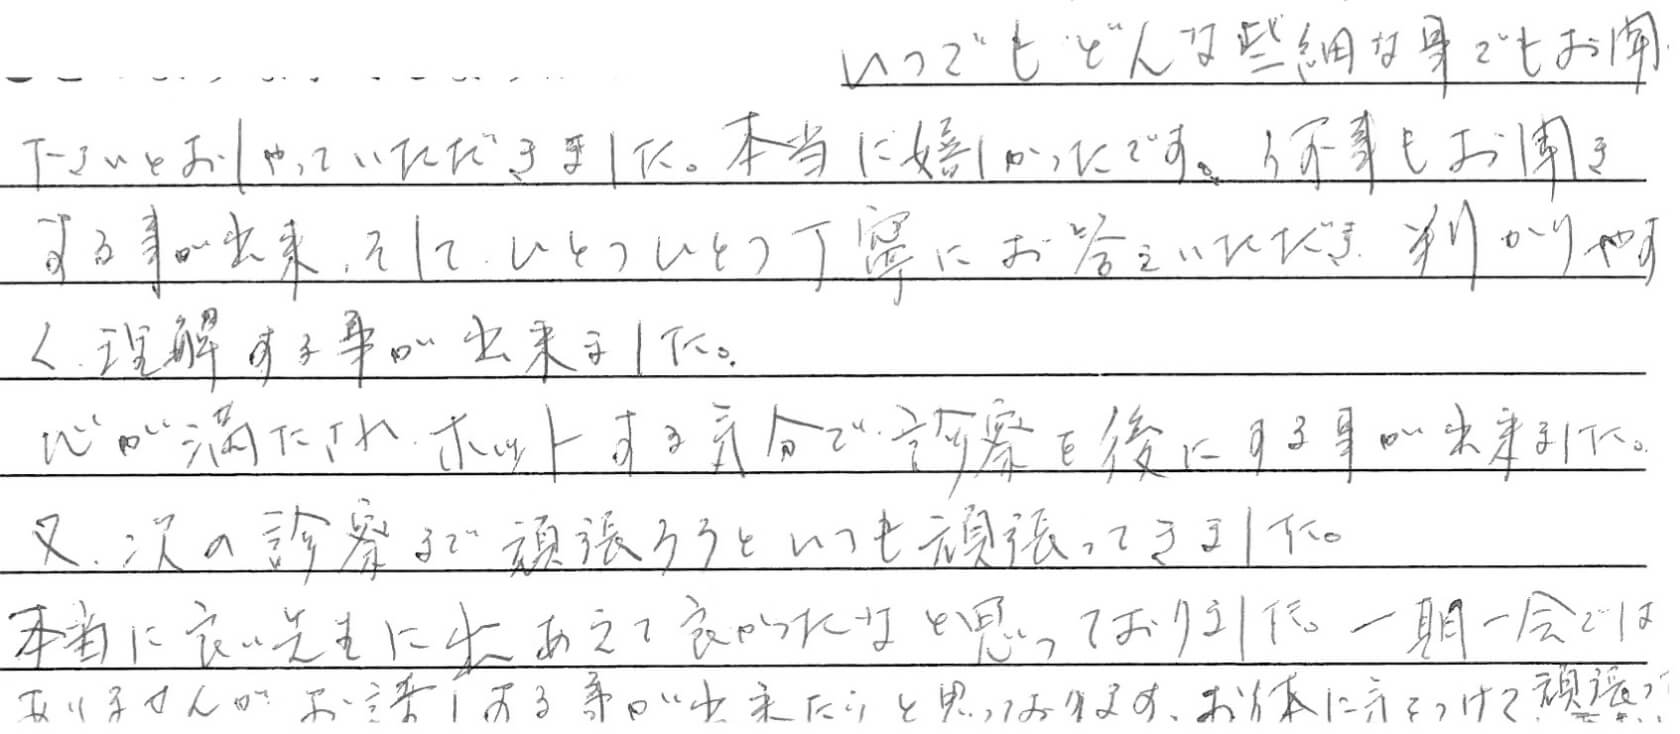 いつでもどんな些細な事でもお聞
下さいとおしゃっていただきました。本当に嬉しかったです。何事もお聞き
する事が出来、そして、ひとつひとつ丁寧にお答えいただき、判かりやす
く、理解する事が出来ました。
心が満たされ、ホットする気分で、診察を後にする事が出来ました。
又、次の診察まで頑張ろうといつも頑張ってきました。
本当に良い先生に出あえて良かったなと思っておりました。一期一会では
ありませんが、お話しする事が出来たらと思っております。お体に気をつけて頑張って